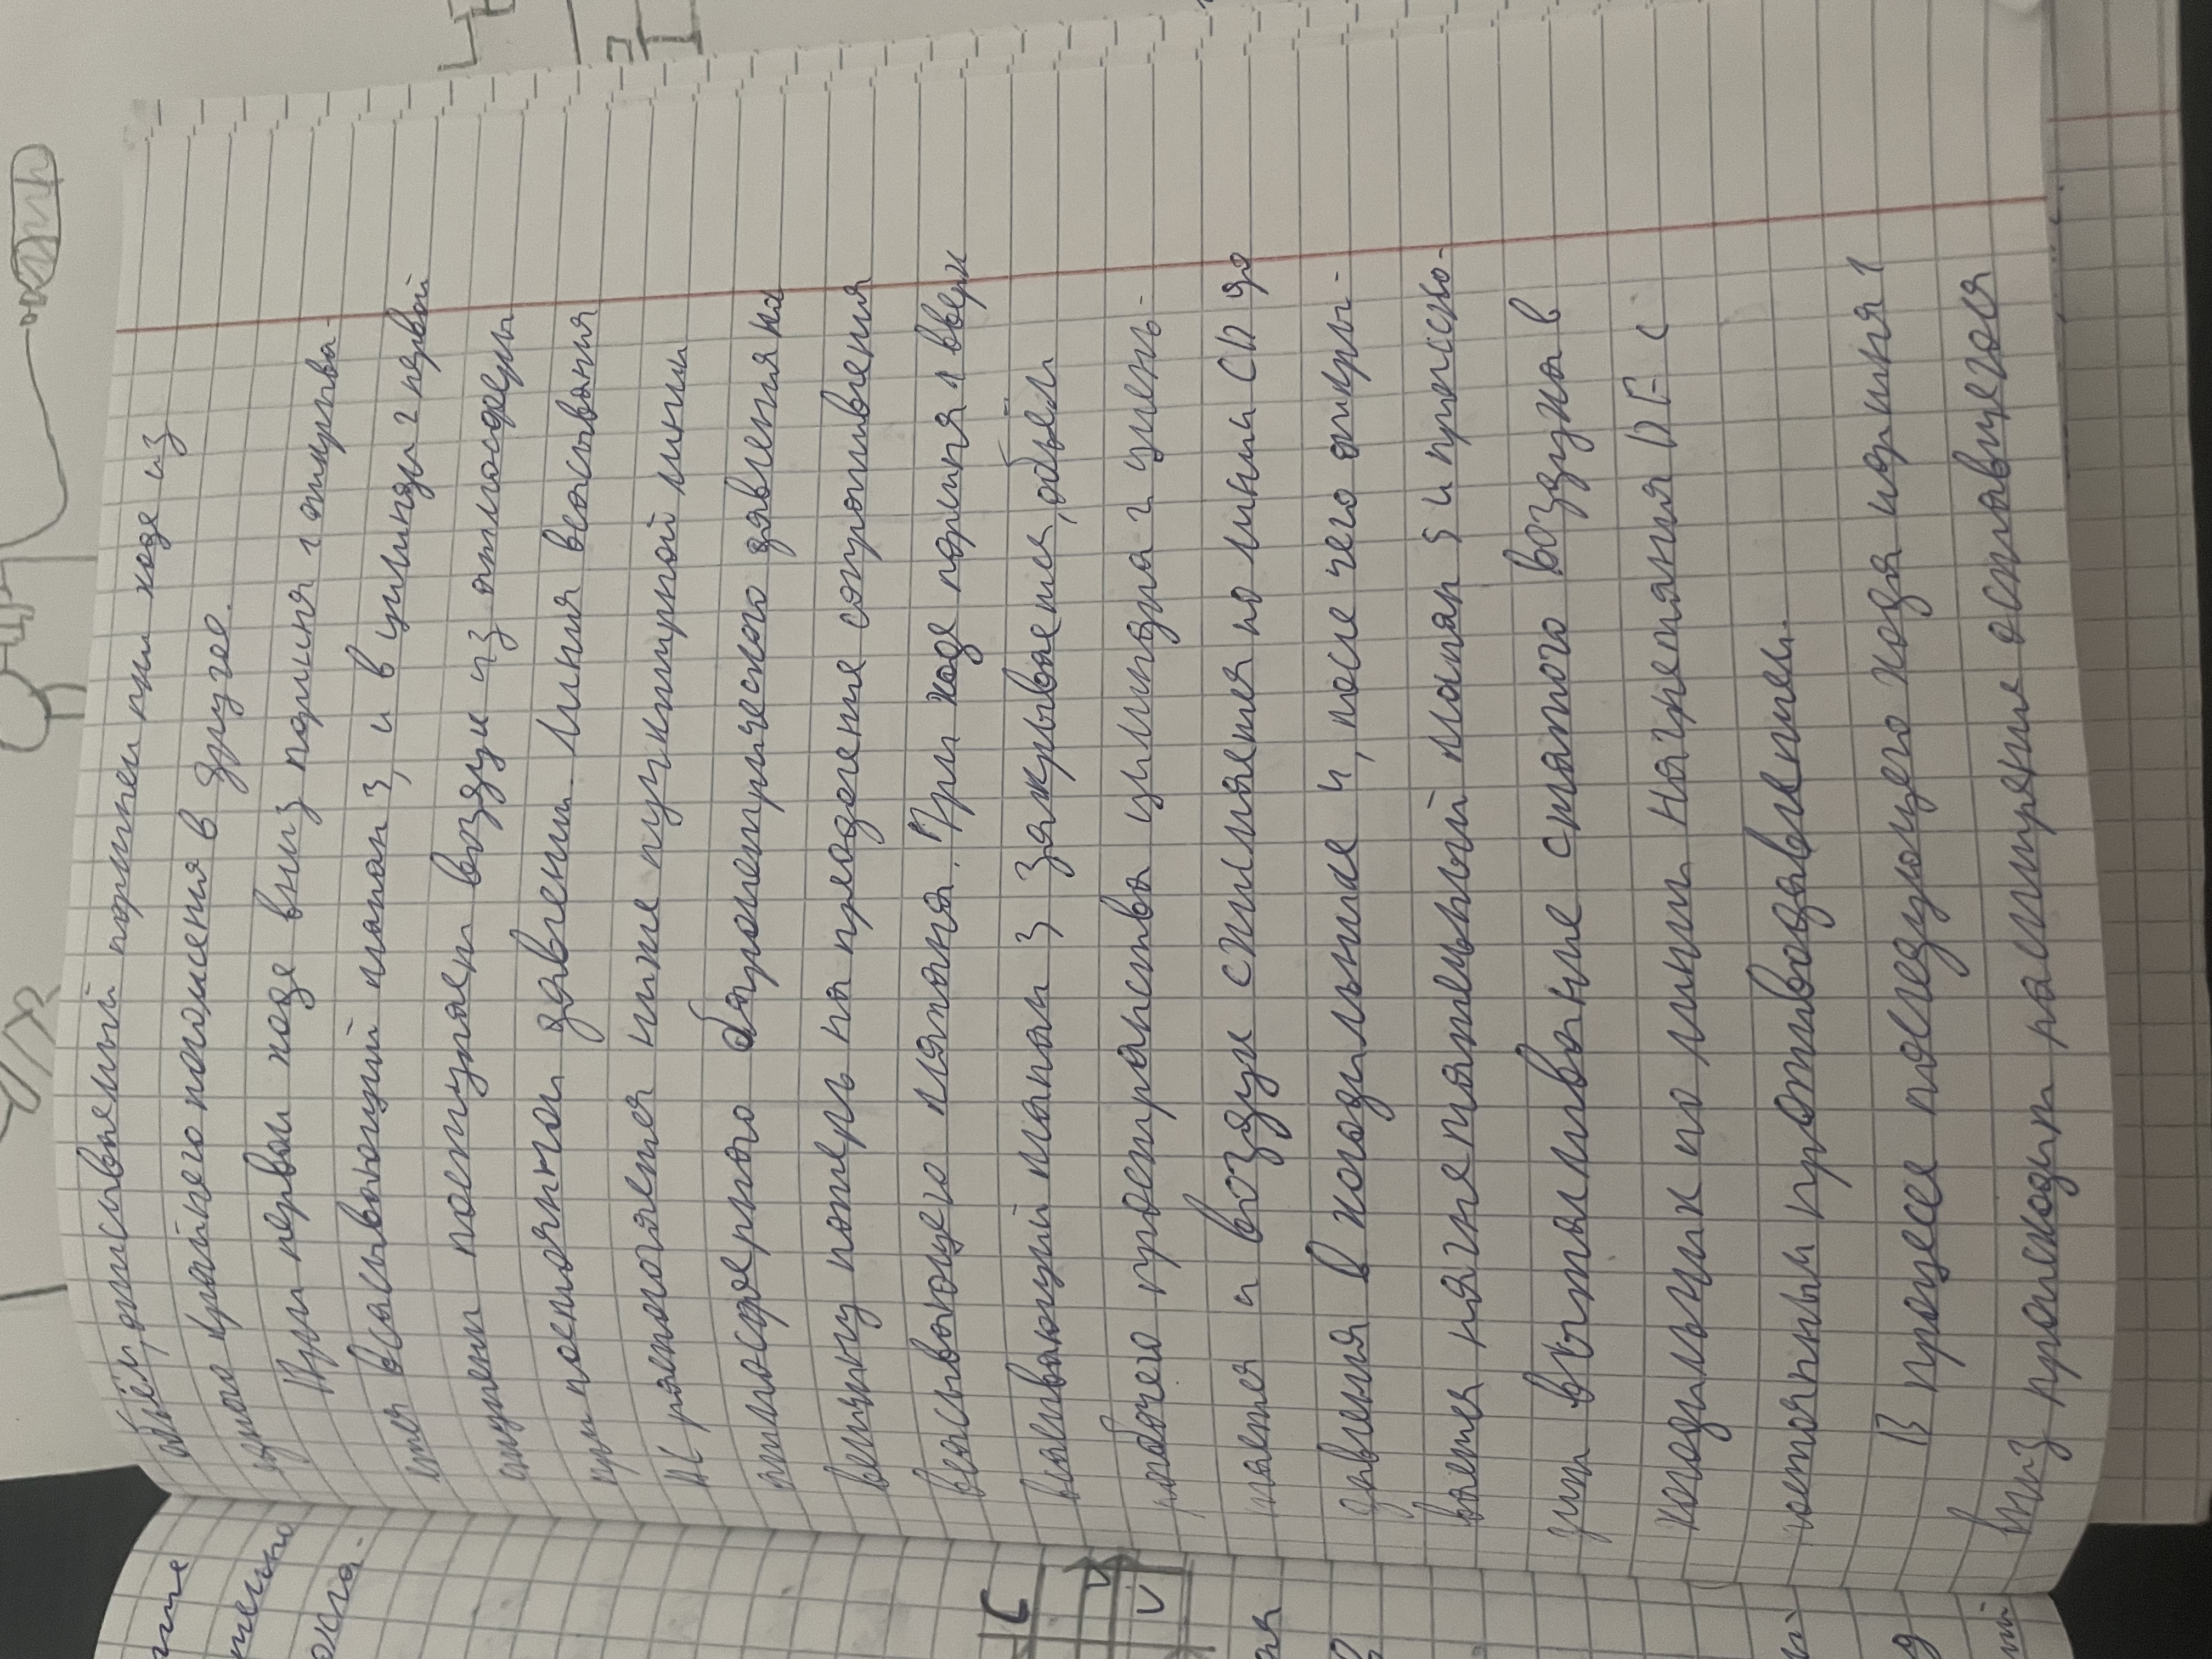 объём, описываемый поршнем при ходе из
одного крайнего положения в другое.
При первом ходе вниз поршня 1 открыва-
ется всасывающий клапан 3, и в цилиндр 2 первой
ступени поступает воздух из атмосферы
при постоянном давлении. Линия всасывания
АС располагается ниже пунктирной линии
атмосферного барометрического давления на
величину потерь на преодоление сопротивления
всасывающего клапана. При ходе поршня 1 вверх
всасывающий клапан 3 закрывается, объем
рабочего пространства цилиндра 2 умень-
шается и воздух сжимается по линии CD до
давления в холодильнике 4, после чего откры-
вается нагнетательный клапан 5 и происхо-
дит выталкивание сжатого воздуха в
холодильник по линии нагнетания DF с
постоянным противодавлением.
В процессе последующего хода поршня 1
вниз происходит расширение оставшегося